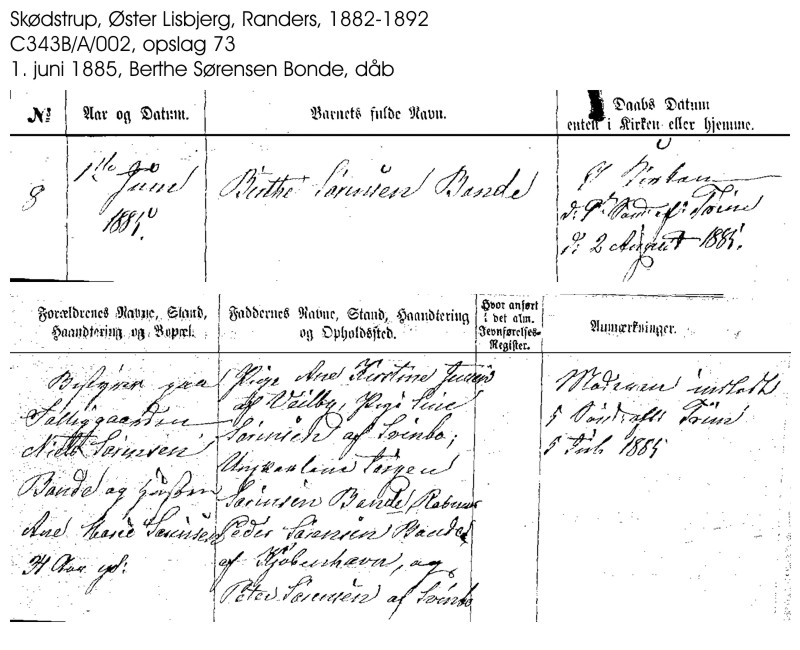 Skødstrup, Øster Lisbjerg, Randers, 1882-1892
C343B/A/002, opslag 73
1. juni 1885, Berthe Sørensen Bonde, dåb
№
Aar og Datum.
Barnets fulde Navn.
Daabs Datum
enten i Kirken eller hjemme.
8
1ste Juni
1885.
Berthe Sørensen Bonde
I Kirken
d: 9de Sønd. ef: Trin:
d: 2 August 1885.
Forældrenes Navne, Stand,
Haandtering og Bopæl.
Faddernes Navne, Stand, Haandtering
og Opholdssted.
Hvor anført
i det alm.
Jevnførelses-
Register.
Anmærkninger.
Bestyrer paa
Niels Sørensen
Bonde og Hustru
Ane Marie Sørensen
Aar gl:
Pige Ane Kirstine Jensen
af Veilby, Pige Sine
Sørensen af Svinbo;
Ungkarlene Jørgen
Sørensen Bonde,
Peder Sørensen Bonde
af Kjøbenhavn, og
Peter Sørensen af Svinbo
Moderen indledt
5 Sønd. eft Trin
5 Juli 1885